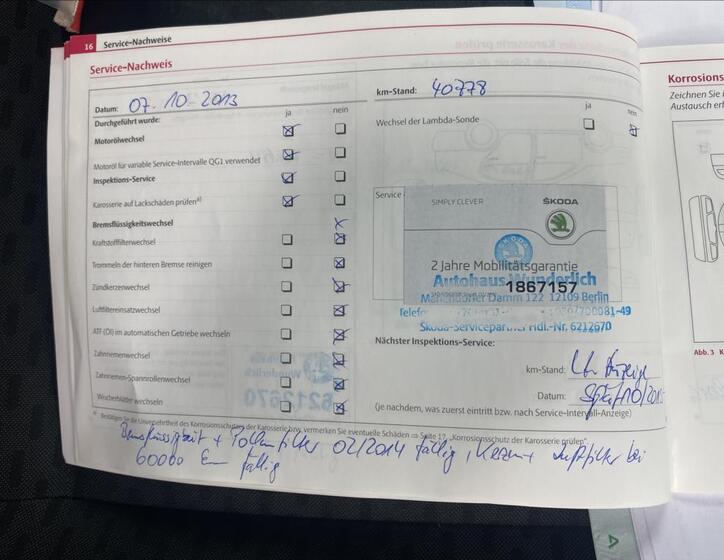 16 Service-Nachweise
Service-Nachweis
Datum: 07.10-2013
km-Stand: 40778
Durchgeführt wurde: ja nein
ja nein
Motorölwechsel
Wechsel der Lambda-Sonde
Motoröl für variable Service-Intervalle QG1 verwendet
Inspektions-Service
Karosserie auf Lackschäden prüfen a)
Bremsflüssigkeitswechsel
Kraftstofffilterwechsel
Trommeln der hinteren Bremse reinigen
Zündkerzenwechsel
Luftfiltereinsatzwechsel
ATF (Öl) im automatischen Getriebe wechseln
Zahnriemenwechsel
Zahnriemen-Spannrollenwechsel
Wischerblätter wechseln
Service
SIMPLY CLEVER ŠKODA
2 Jahre Mobilitätsgarantie
Autohaus Wunderlich
1867157
Mariendorfer Damm 122 12109 Berlin
Telefon 700981-49
Skoda-Servicepartner Hdl.-Nr. 6212670
Nächster Inspektions-Service:
km-Stand: Lt. Anzeige
Datum: Spät 10/2015
(je nachdem, was zuerst eintritt bzw. nach Service-Intervall-Anzeige)
a) Bestätigen Sie die Unversehrtheit des Korrosionsschutzes der Karosserie bzw. vermerken Sie eventuelle Schäden ⇒ Seite 17, „Korrosionsschutz der Karosserie prüfen".
Bremsflüssigkeit + Pollenfilter 02/2014 fällig, Kerzen + Luftfilter bei
60000 km fällig
Korrosions
Zeichnen Sie
Austausch erf
Abb. 3 K